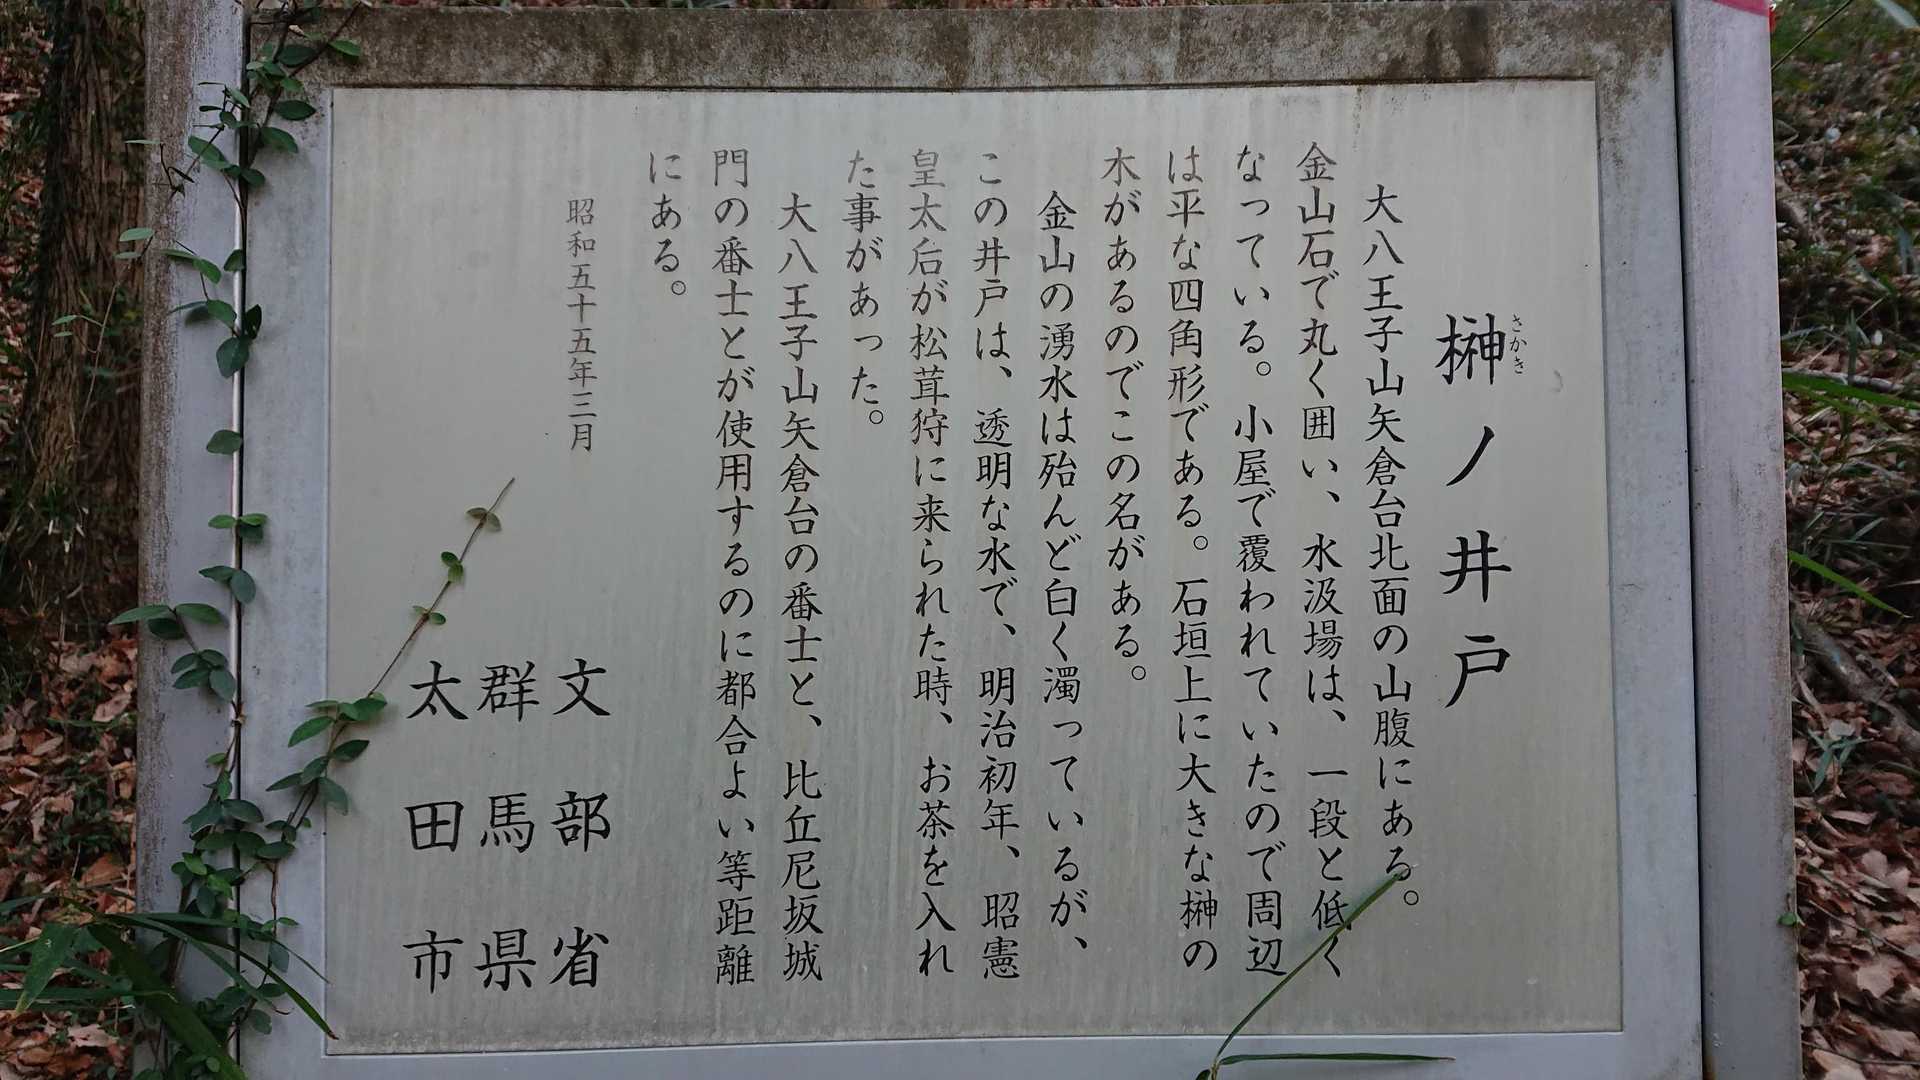 榊ノ井戸
さかき
大八王子山矢倉台北面の山腹にある。
金山石で丸く囲い、水汲場は、一段と低く
なっている。小屋で覆われていたので周辺
は平な四角形である。石垣上に大きな榊の
木があるのでこの名がある。
金山の湧水は殆んど白く濁っているが、
この井戸は、透明な水で、明治初年、昭憲
皇太后が松茸狩に来られた時、お茶を入れ
た事があった。
大八王子山矢倉台の番士と、比丘尼坂城
門の番士とが使用するのに都合よい等距離
にある。
昭和五十五年三月
文部省
群馬県
太田市